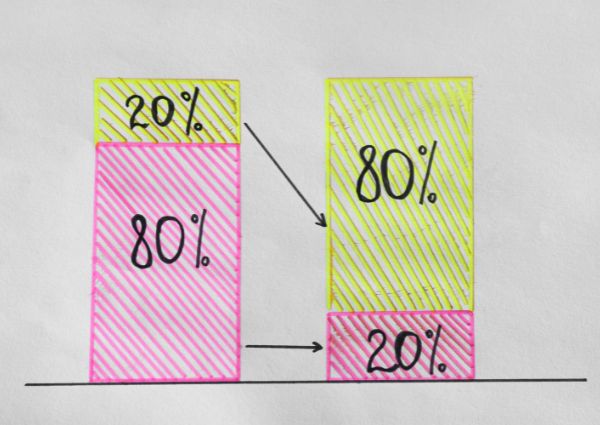 20%
80%
80%
20%